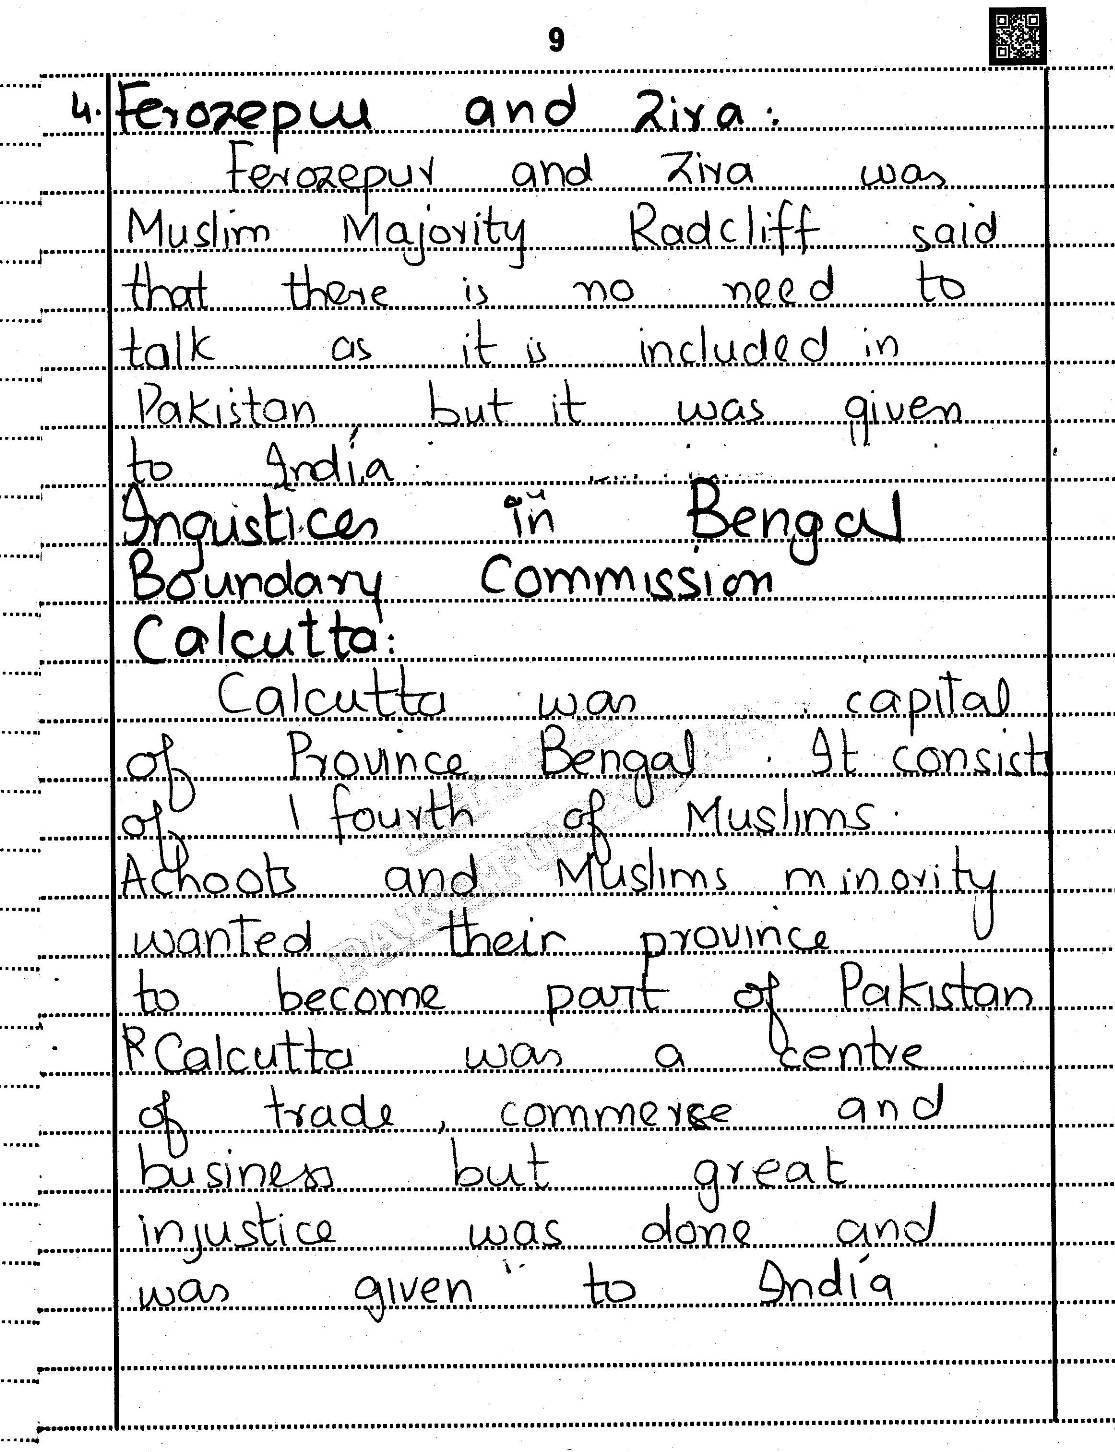 9
4. Ferozepur and Zira:
Ferozepur and Zira was
Muslim Majority Radcliff said
that there is no need to
talk as it is included in
Pakistan, but it was given
to India.
Ingustices in Bengal
Boundary Commission
Calcutta:
Calcutta was capital
of Province Bengal. It consist
of 1 fourth of Muslims.
Achoots and Muslims minority
wanted their province
to become part of Pakistan
Calcutta was a centre
of trade, commerce and
business but great
injustice was done and
was given to India